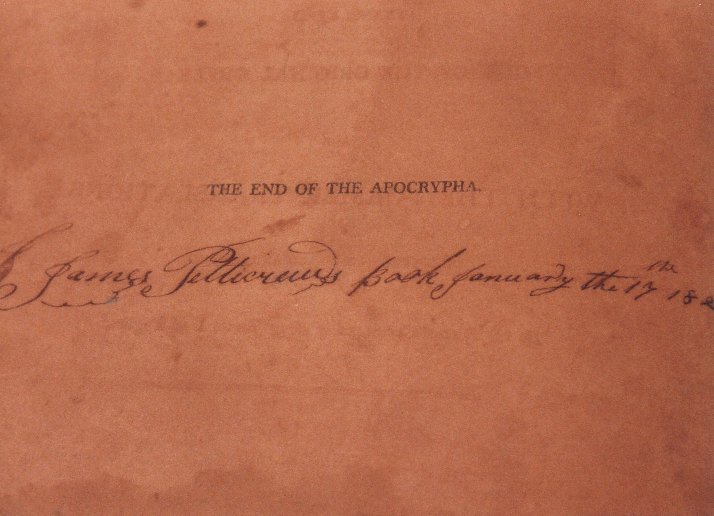 THE END OF THE APOCRYPHA.
James Pelticrew's Book January the 17th 182